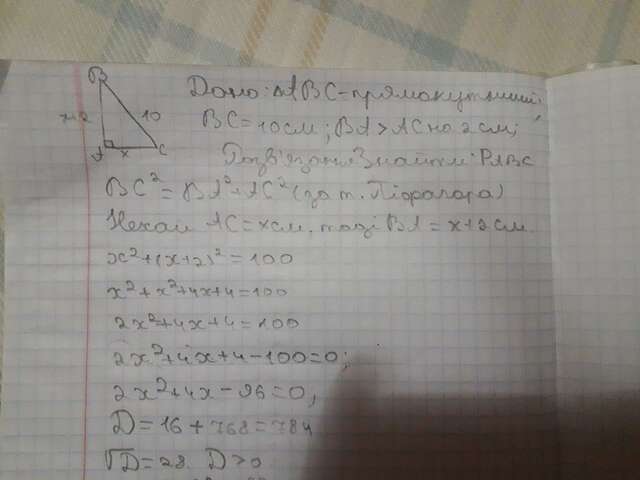 B
Дано: △ABC - прямокутний;
x+2 10
BC = 10 см; BA > AC на 2 см;
A x C
Розв'язання Знайти: PABC
BC² = BA² + AC² (за т. Піфагора)
Нехай AC = x см, тоді BA = x+2 см.
x² + (x+2)² = 100
x² + x² + 4x + 4 = 100
2x² + 4x + 4 = 100
2x² + 4x + 4 - 100 = 0;
2x² + 4x - 96 = 0,
D = 16 + 768 = 784
√D = 28 D > 0